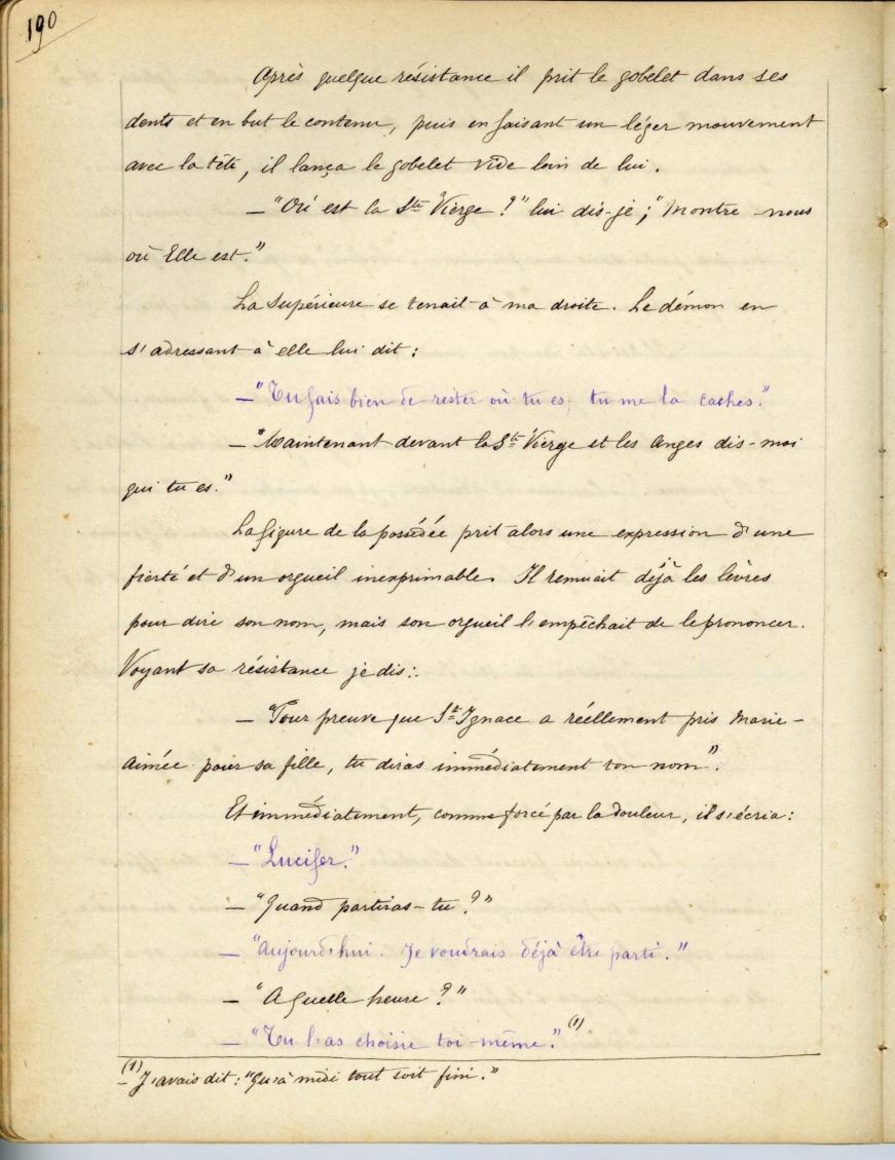 190
Après quelque résistance il prit le gobelet dans ses
dents et en but le contenu, puis en faisant un léger mouvement
avec la tête, il lança le gobelet vide loin de lui.
— "Où est la Ste Vierge ?" lui dis-je ; "Montre-nous
où Elle est."
La Supérieure se tenait à ma droite. Le démon en
s'adressant à elle lui dit :
— "Tu fais bien de rester où tu es, tu me la caches."
— "Maintenant devant la Ste Vierge et les Anges dis-moi
qui tu es."
La figure de la possédée prit alors une expression d'une
fierté et d'un orgueil inexprimable. Il remuait déjà les lèvres
pour dire son nom, mais son orgueil l'empêchait de le prononcer.
Voyant sa résistance je dis :
— "Pour preuve que St Ignace a réellement pris Marie-
Aimée pour sa fille, tu diras immédiatement ton nom".
Et immédiatement, comme forcé par la douleur, il s'écria :
— "Lucifer."
— "Quand partiras-tu ?"
— "Aujourd'hui. Je voudrais déjà être parti."
— "A quelle heure ?"
— "Tu l'as choisie toi-même." (1)
(1) J'avais dit : "Qu'à midi tout soit fini."